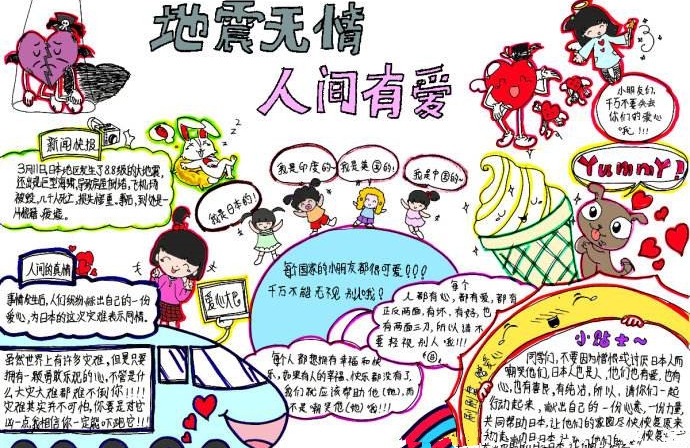 地震无情
人间有爱
小朋友们,
千万不要失去
你们的爱心
哦!!!
新闻快报
3月11日,日本地区发生了8.8级的大地震,
还出现巨型海啸,导致房屋倒塌,飞机場
被毁,几千人死亡,损失惨重、事后,到处是一
片狼藉、疮痍。
我是日本的!
我是印度的~
我是英国的!
我是中国的~
Yummy!
人间的真情
事情发生后,人们纷纷献出自己的一份
爱心,为日本的这次灾难表示同情。
爱心大巴
每个国家的小朋友都很可爱???
千万不能
别人哦?
每个
人都有心,都有爱,都有
正反两面,有坏,有好,也
有两面三刀,所以请不
要轻视别人哦!!!
虽然世界上有许多灾难,但是只要
拥有一颗勇敢乐观的心,不管是什
么大灾大难都难不倒你!!!!
灾难其实并不可怕,你要是对它
凶一点,我相信你一定能吓跑它!!!
每个人都想拥有幸福和快
乐,如果有人的幸福、快乐都没有了,
我们就应该帮助他(她),而
不是嘲笑他(她)哦!!!
小贴士~
同学们,不要因为憎恨或讨厌日本人而
嘲笑他们,日本人也是人,他们也有爱,也有
心,也有善良,有纯洁,所以,请你们一起
行动起来,献出自己的一份心意,一份力量,
共同帮助日本,让他们的家园尽快恢复原来